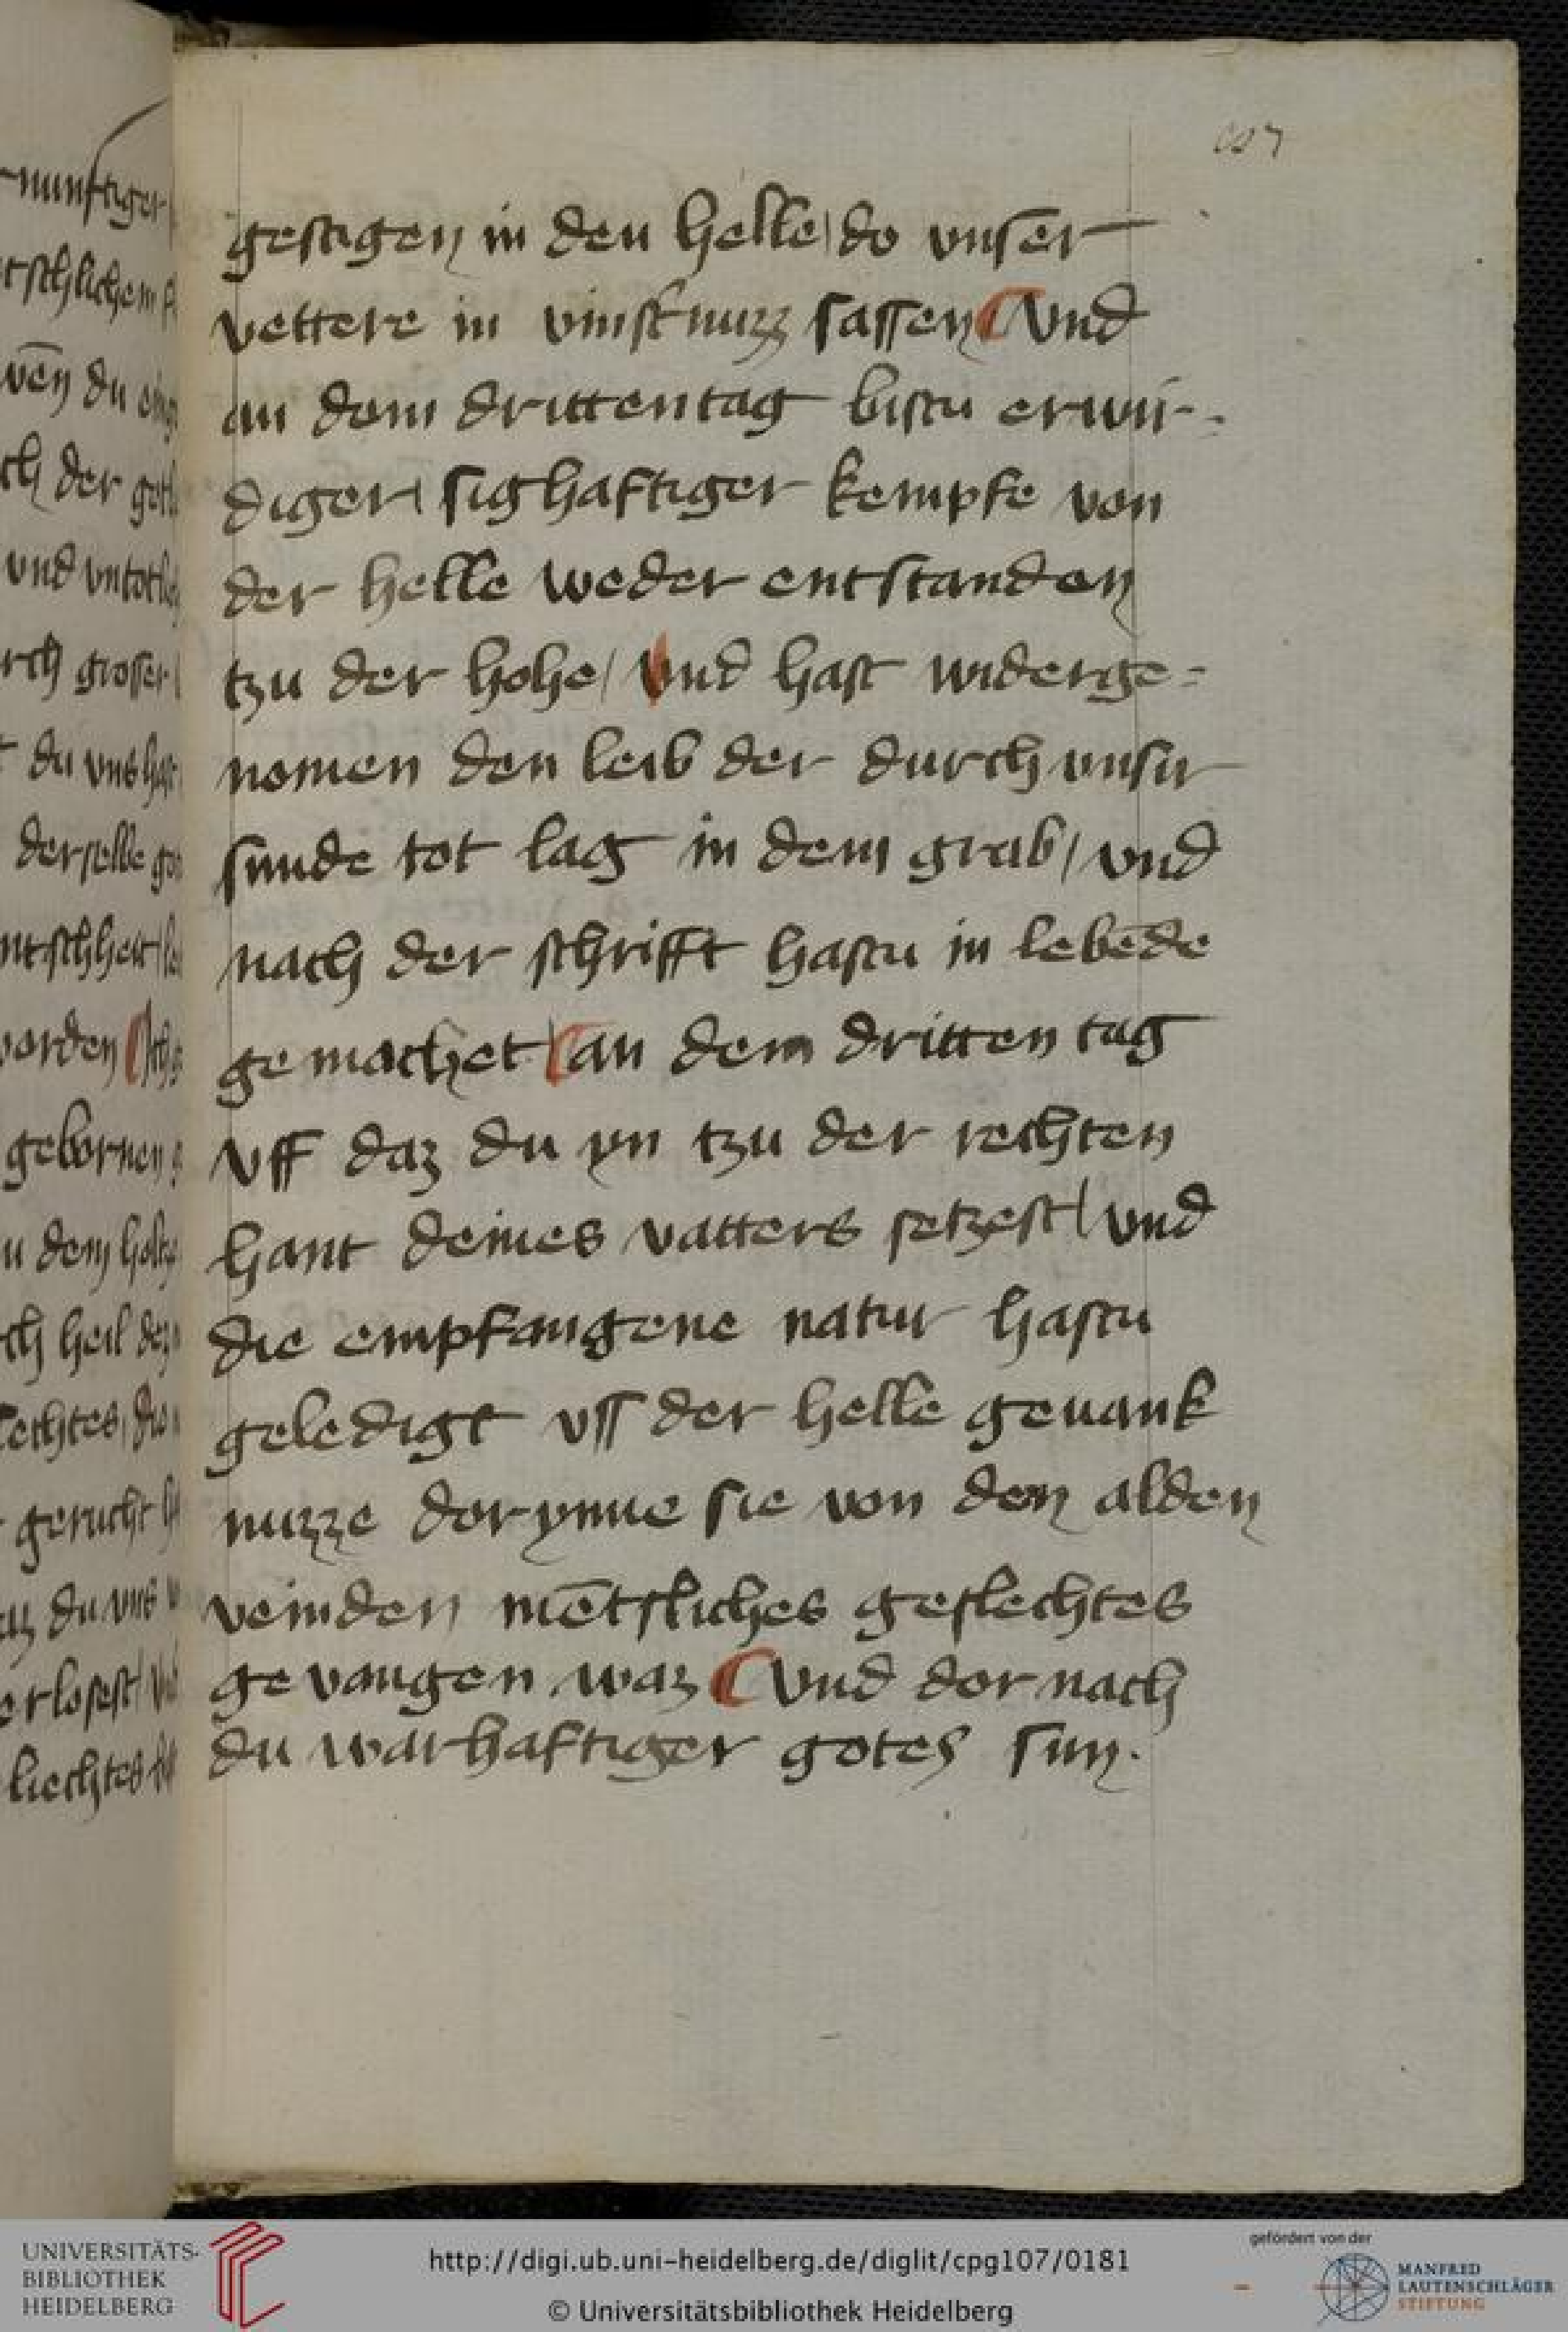 gestigen in den helle / do vnser
vettere in vinst'nuzz sassen ¶ Vnd
an dem dritten tag bistu erwir-
diger / sighaftiger kempfe von
der helle weder entstanden
tzu der hohe / Vnd hast widerge=
nomen den leib der durch vnsir
sunde tot lag in dem grab / vnd
nach der schrifft hastu in lebēde
gemachet / ¶ an dem dritten tag
Vff daz du yn tzu der rechten
hant deines vatters setzest / vnd
die empfangene natur hastu
geledigt vss der helle geuank
nuzze dorynne sie von den alden
veinden mētsliches geslechtes
gevangen waz ¶ Vnd dor nach
du warhaftiger gotes sun.
nunftiger
du
ch der
vnd
rch grosser
du vns hast
derselbe
orden
gebornen
u dem holtz
ch heil
echtes / die
gerucht
du vns
erlosest / vnd
liechtes
UNIVERSITÄTS-
BIBLIOTHEK
HEIDELBERG
http://digi.ub.uni-heidelberg.de/diglit/cpg107/0181
© Universitätsbibliothek Heidelberg
gefördert von der
MANFRED
LAUTENSCHLÄGER
STIFTUNG